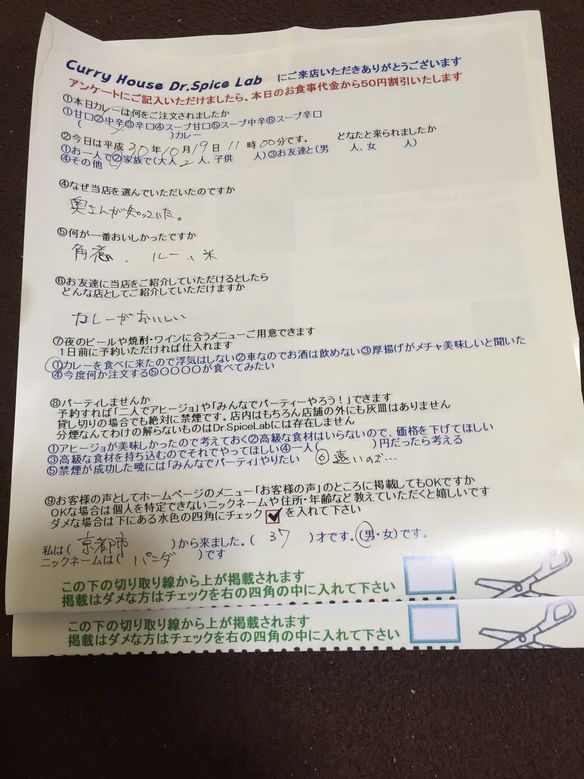 Curry House Dr.Spice Lab にご来店いただきありがとうございます
アンケートにご記入いただけましたら、本日のお食事代金から50円割引いたします
①本日カレーは何をご注文されましたか
①甘口②中辛③辛口④スープ甘口⑤スープ中辛⑥スープ辛口
( )カレー
②今日は平成30年10月19日11時00分です。 どなたと来られましたか
①お一人で②家族で(大人2人、子供 人)③お友達と(男 人、女 人)
④その他
④なぜ当店を選んでいただいたのですか
奥さんが知っていた。
⑤何が一番おいしかったですか
角煮、ルー、米
⑥お友達に当店をご紹介していただけるとしたら
どんな店としてご紹介していただけますか
カレーがおいしい
⑦夜のビールや焼酎・ワインに合うメニューご用意できます
1日前に予約いただければ仕入れます
①カレーを食べに来たので浮気はしない②車なのでお酒は飲めない③厚揚げがメチャ美味しいと聞いた
④今度何か注文する⑤〇〇〇〇が食べてみたい
⑧パーティしませんか
予約すれば「二人でアヒージョ」や「みんなでパーティーやろう!」できます
貸し切りの場合でも絶対に禁煙です。店内はもちろん店舗の外にも灰皿はありません
分煙なんてわけの解らないものはDr.SpiceLabには存在しません
①アヒージョが美味しかったので考えておく②高級な食材はいらないので、価格を下げてほしい
③高級な食材を持ち込むのでそれでやってほしい④一人( )円だったら考える
⑤禁煙が成功した暁には「みんなでパーティ」やりたい ⑥遠いので…
⑨お客様の声としてホームページのメニュー「お客様の声」のところに掲載してもOKですか
OKな場合は個人を特定できないニックネームや住所・年齢など教えていただくと嬉しいです
ダメな場合は下にある水色の四角にチェック☑を入れて下さい
私は( 京都市 )から来ました。( 37 )才です。(男・女)です。
ニックネームは( パンダ )です
この下の切り取り線から上が掲載されます
掲載はダメな方はチェックを右の四角の中に入れて下さい
この下の切り取り線から上が掲載されます
掲載はダメな方はチェックを右の四角の中に入れて下さい